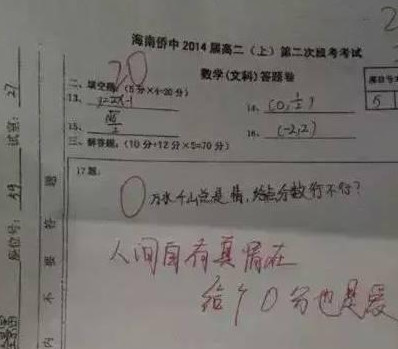 海南侨中2014届高二（上）第二次段考考试
数学(文科)答题卷
座位号
5
20
二、填空题。(5分×4=20分)
13、y=2x-1
14、(0,½)
15、
16、(-2,2)
三、解答题。(10分+12分×5=70分)
17题:
0 万水千山总是情,给点分数行不行?
人间自有真情在
给个0分也是爱
试室: 27
座位号:
内 不 要 答 题